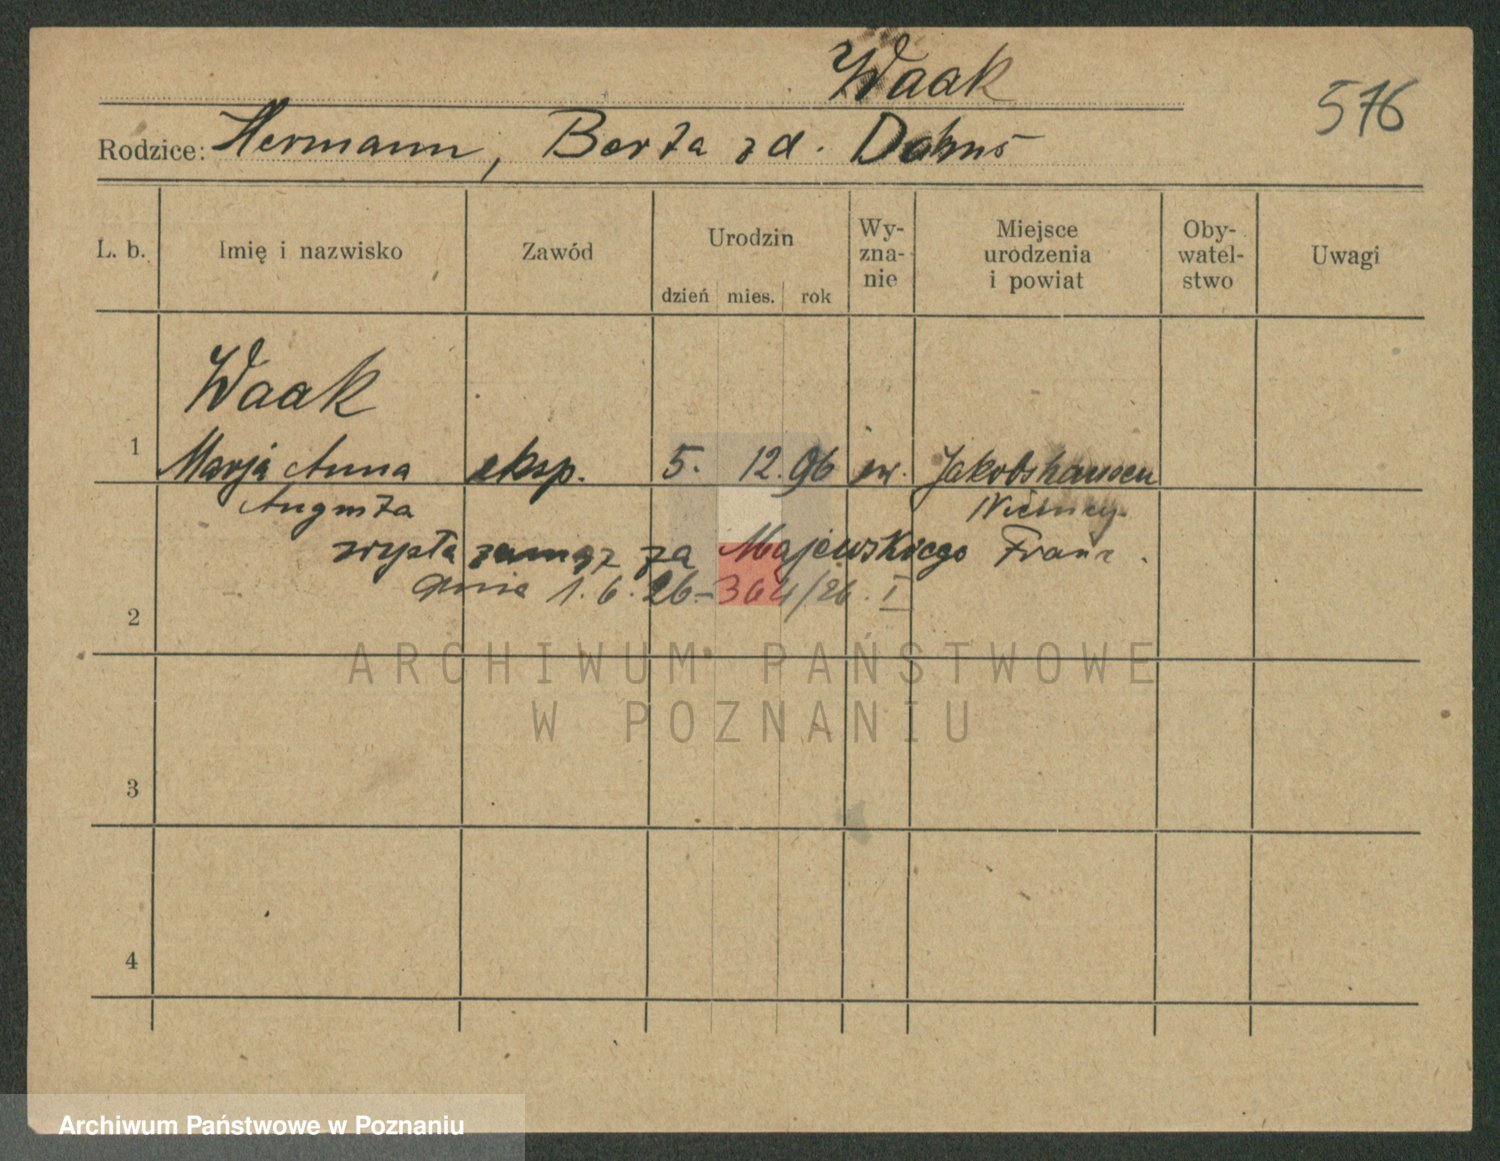 Waak
576
Rodzice: Hermann, Berta zd. Dahms
L. b. Imię i nazwisko Zawód Urodzin dzień mies. rok Wy-zna-nie Miejsce urodzenia i powiat Oby-watel-stwo Uwagi
Waak
1 Marja Anna eksp. 5. 12. 96 ew. Jakobshausen
Augusta Niemcy
wyszła zamąż za Majewskiego Franc.
dnia 1.6.26.–364/26. I
2
ARCHIWUM PAŃSTWOWE
W POZNANIU
3
4
Archiwum Państwowe w Poznaniu